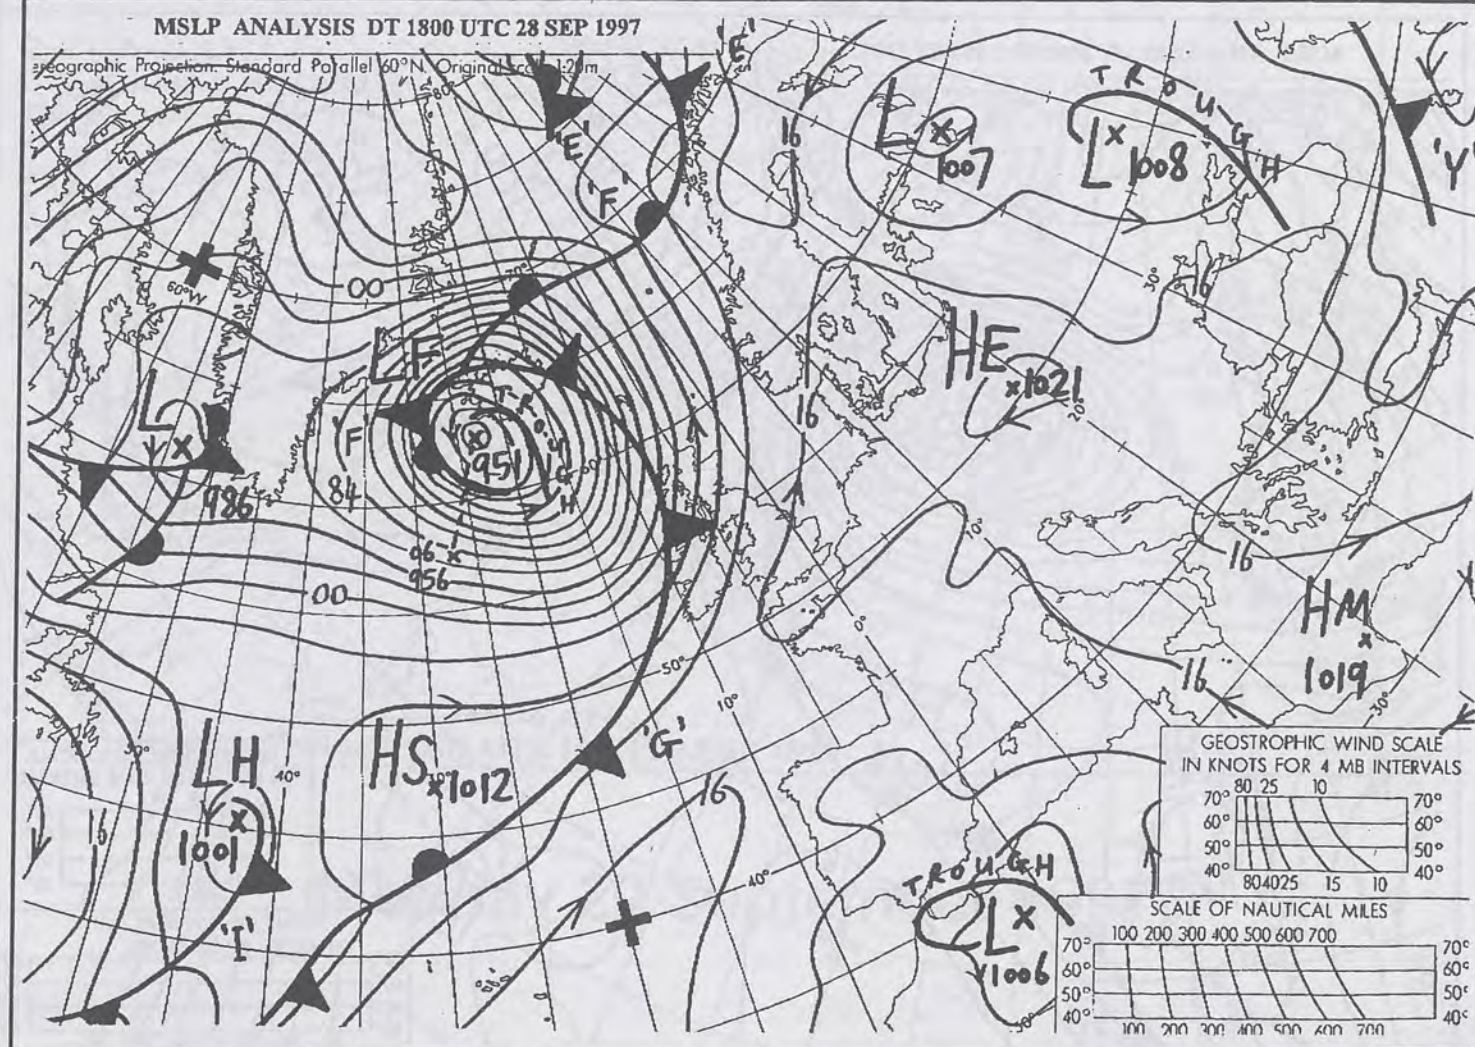 MSLP ANALYSIS DT 1800 UTC 28 SEP 1997
ereographic Projection. Standard Parallel 60°N. Original scale 1:20m
'E'
'E'
80°
TROUGH
16
L
1007
L
1008
'Y'
'F'
60°W
00
70°
30°
16
LF
HE
1021
20°
L
986
'F'
TROUGH
951
84
16
06
956
10°
16
00
HM
1019
0°
50°
16
30°
10°
LH
50°
40°
HS
1012
'G'
16
16
1001
40°
'I'
TROUGH
L
1006
30°
GEOSTROPHIC WIND SCALE
IN KNOTS FOR 4 MB INTERVALS
80 25 10
70° 70°
60° 60°
50° 50°
40° 40°
80 40 25 15 10
SCALE OF NAUTICAL MILES
100 200 300 400 500 600 700
70° 70°
60° 60°
50° 50°
40° 40°
100 200 300 400 500 600 700